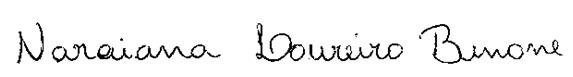 Naraiana Loureiro Benone